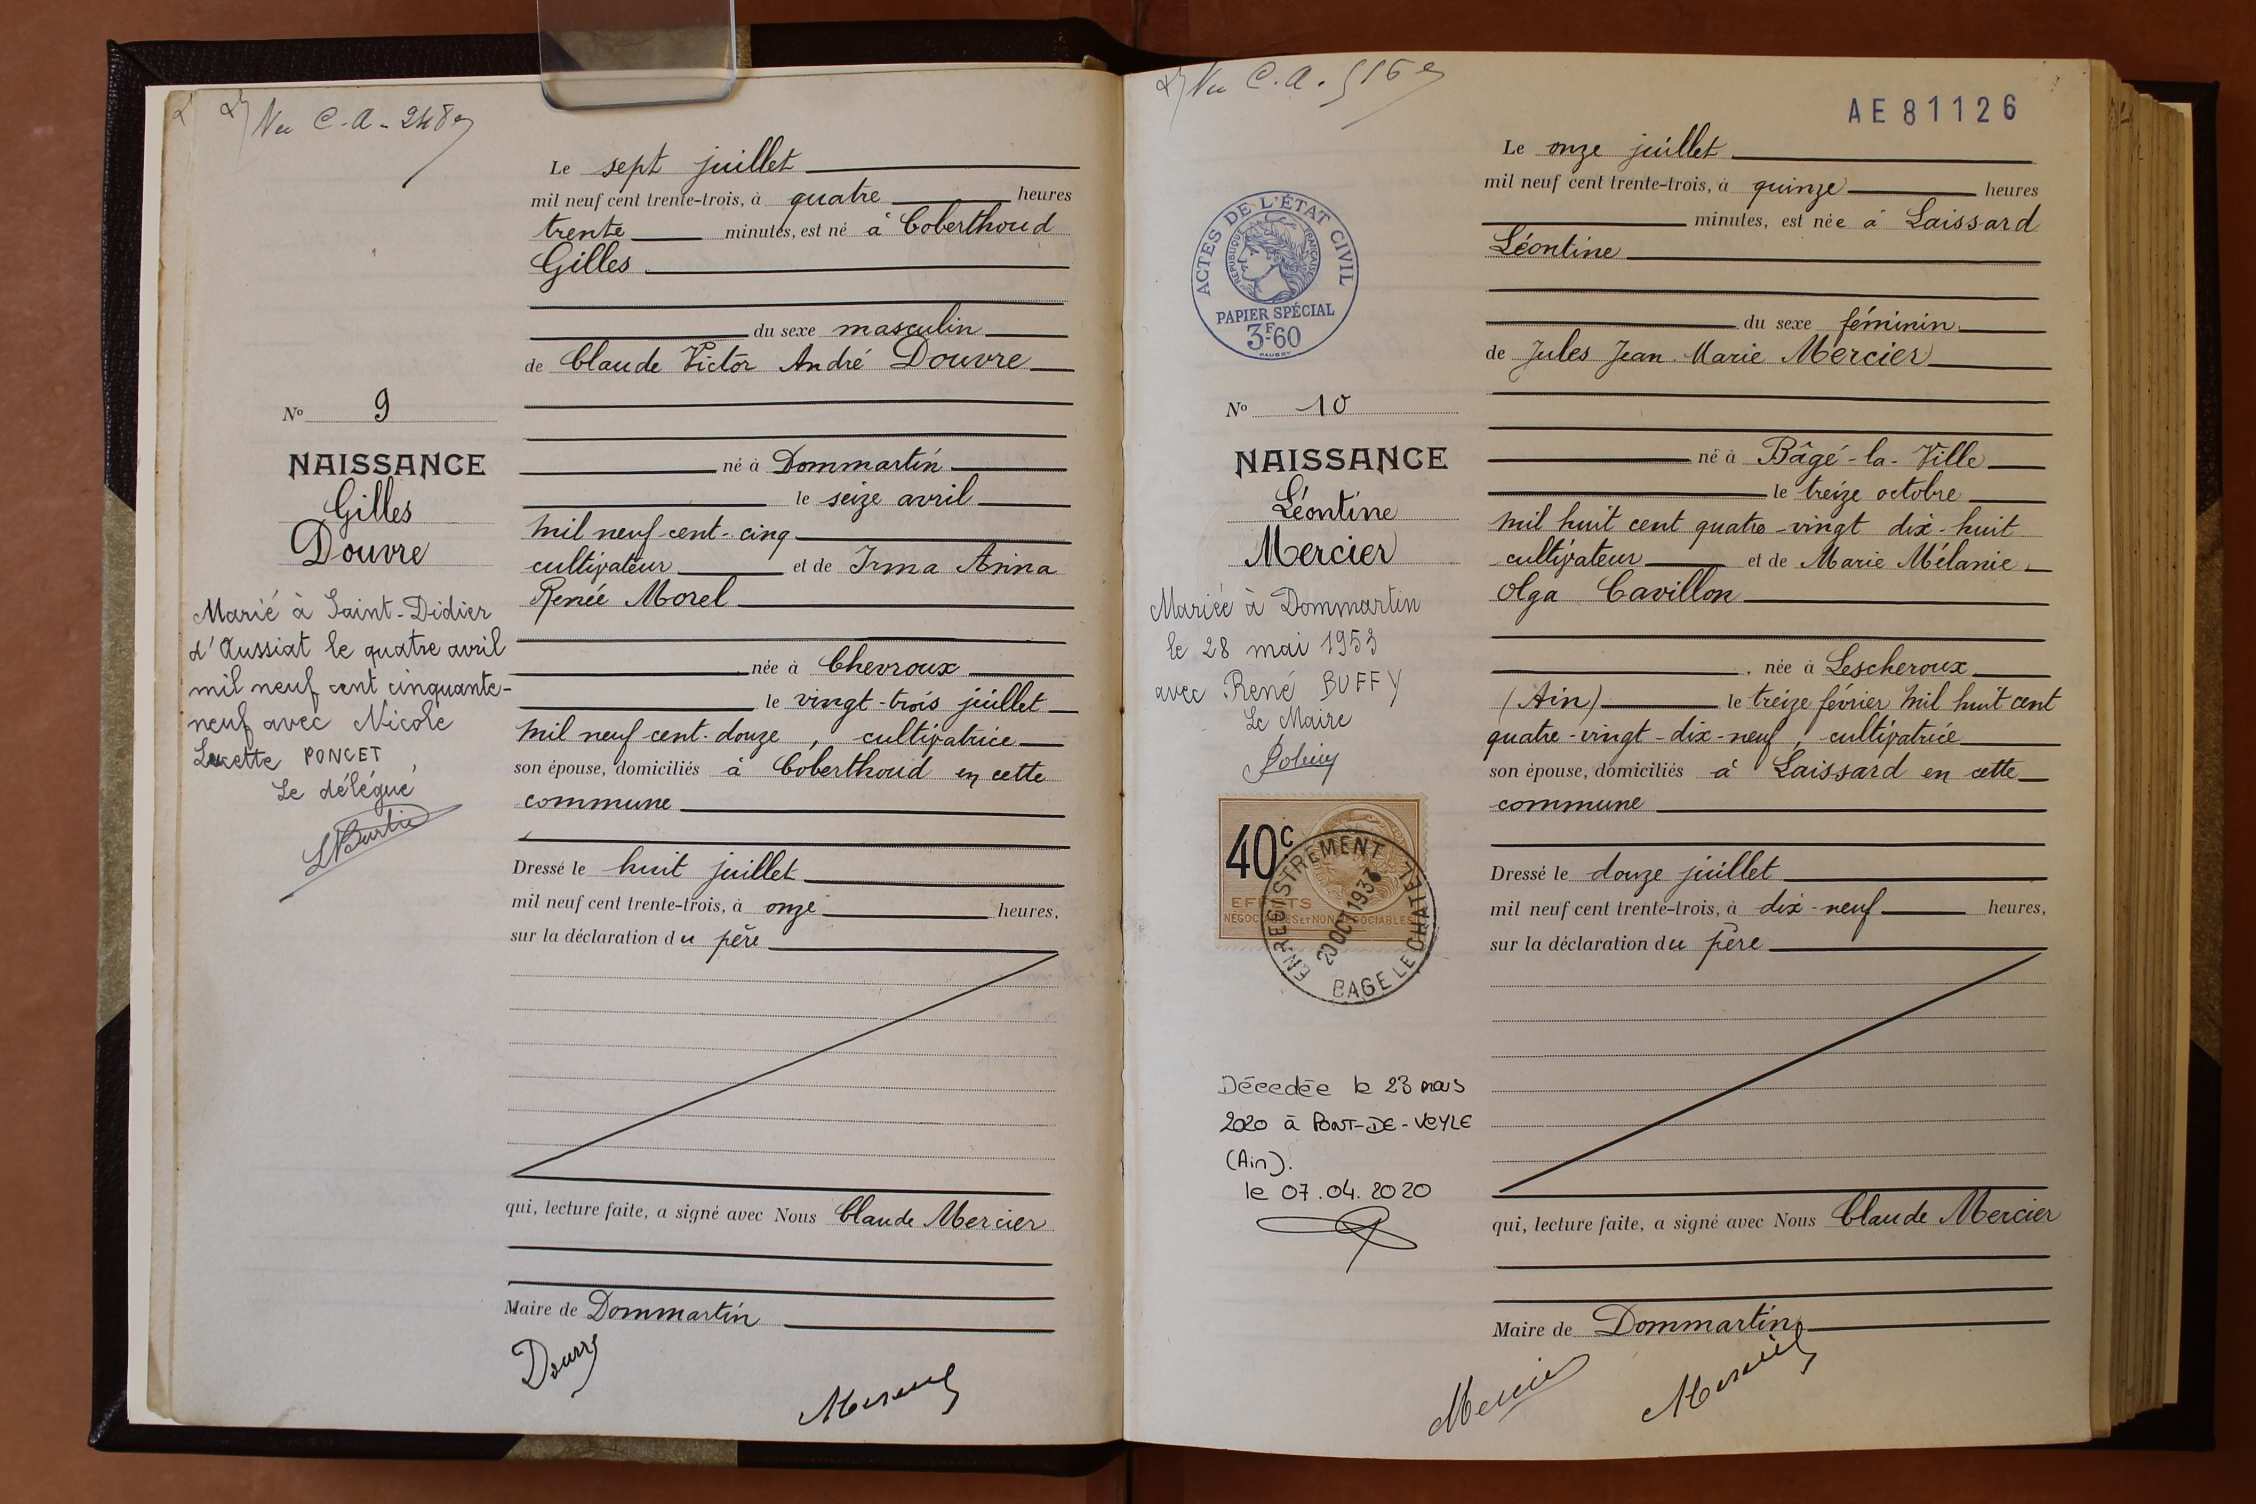 Vu C.A. 248
Le sept juillet
mil neuf cent trente-trois, à quatre heures
trente minutes, est né à Coberthoud
Gilles
du sexe masculin
de Claude Victor André Douvre
né à Dommartin
le seize avril
mil neuf cent cinq
cultivateur et de Irma Anna
Renée Morel
née à Chevroux
le vingt-trois juillet
mil neuf cent douze, cultivatrice
son épouse, domiciliés à Coberthoud en cette
commune
Dressé le huit juillet
mil neuf cent trente-trois, à onze heures,
sur la déclaration du père
qui, lecture faite, a signé avec Nous Claude Mercier
Maire de Dommartin
N° 9
NAISSANCE
Gilles
Douvre
Marié à Saint-Didier
d'Aussiat le quatre avril
mil neuf cent cinquante-
neuf avec Nicole
Lucette PONCET
Le délégué
Vu C.A. 516
AE 81126
Le onze juillet
mil neuf cent trente-trois, à quinze heures
minutes, est née à Laissard
Léontine
du sexe féminin
de Jules Jean Marie Mercier
né à Bâgé-la-Ville
le treize octobre
mil huit cent quatre-vingt dix-huit
cultivateur et de Marie Mélanie
Olga Cavillon
née à Lescheroux
(Ain) le treize février mil huit cent
quatre-vingt-dix-neuf, cultivatrice
son épouse, domiciliés à Laissard en cette
commune
Dressé le douze juillet
mil neuf cent trente-trois, à dix-neuf heures,
sur la déclaration du père
qui, lecture faite, a signé avec Nous Claude Mercier
Maire de Dommartin
Mercier
ACTES DE L'ÉTAT CIVIL
RÉPUBLIQUE FRANÇAISE
PAPIER SPÉCIAL
3F60
N° 10
NAISSANCE
Léontine
Mercier
Mariée à Dommartin
le 28 mai 1953
avec René BUFFY
Le Maire
40c
EFFETS
NÉGOCIABLES ET NON NÉGOCIABLES
ENREGISTREMENT
20 OCT 1933
BAGE LE CHATEL
Décédée le 23 mars
2020 à PONT-DE-VEYLE
(Ain).
le 07.04.2020